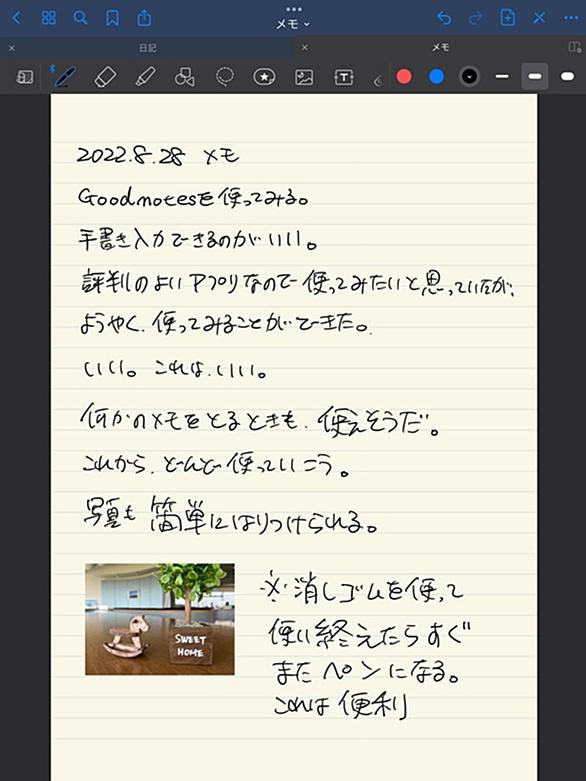 メモ
日記
メモ
2022.8.28 メモ
Goodnotesを使ってみる。
手書き入力できるのがいい。
評判のよいアプリなので使ってみたいと思っていたが、
ようやく、使ってみることができた。
いい。これは、いい。
何かのメモをとるときも、使えそうだ。
これから、どんどん使っていこう。
写真も簡単にはりつけられる。
SWEET
HOME
※消しゴムを使って
使い終えたらすぐ
またペンになる。
これは便利